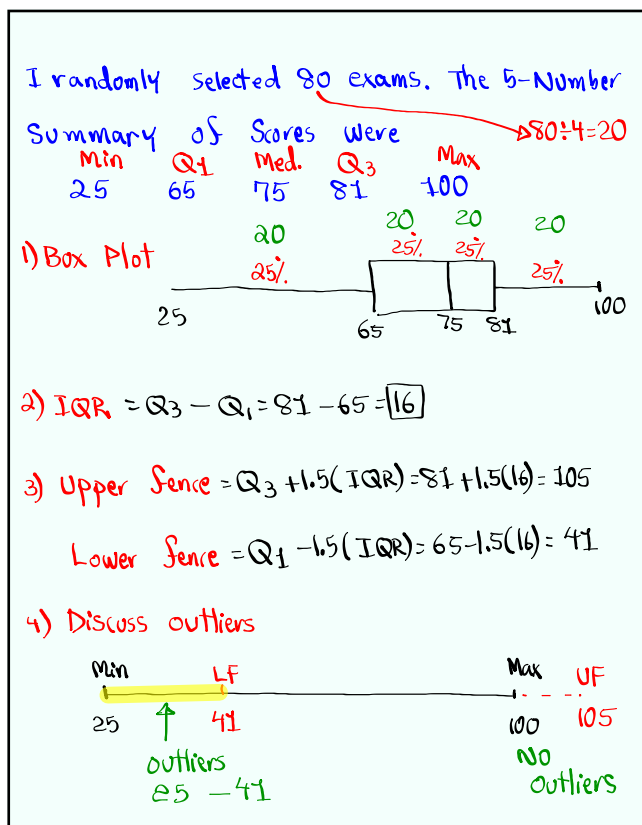 I randomly selected 80 exams. The 5-Number
Summary of Scores were →80÷4=20
Min Q1 Med. Q3 Max
25 65 75 81 100
20 20 20 20
1) Box Plot 25% 25% 25% 25%
25 65 75 81 100
2) IQR = Q3 - Q1 = 81 - 65 = 16
3) Upper fence = Q3 + 1.5(IQR) = 81 + 1.5(16) = 105
Lower fence = Q1 - 1.5(IQR) = 65 - 1.5(16) = 41
4) Discuss outliers
Min LF Max UF
25 41 100 105
outliers NO
25 - 41 outliers